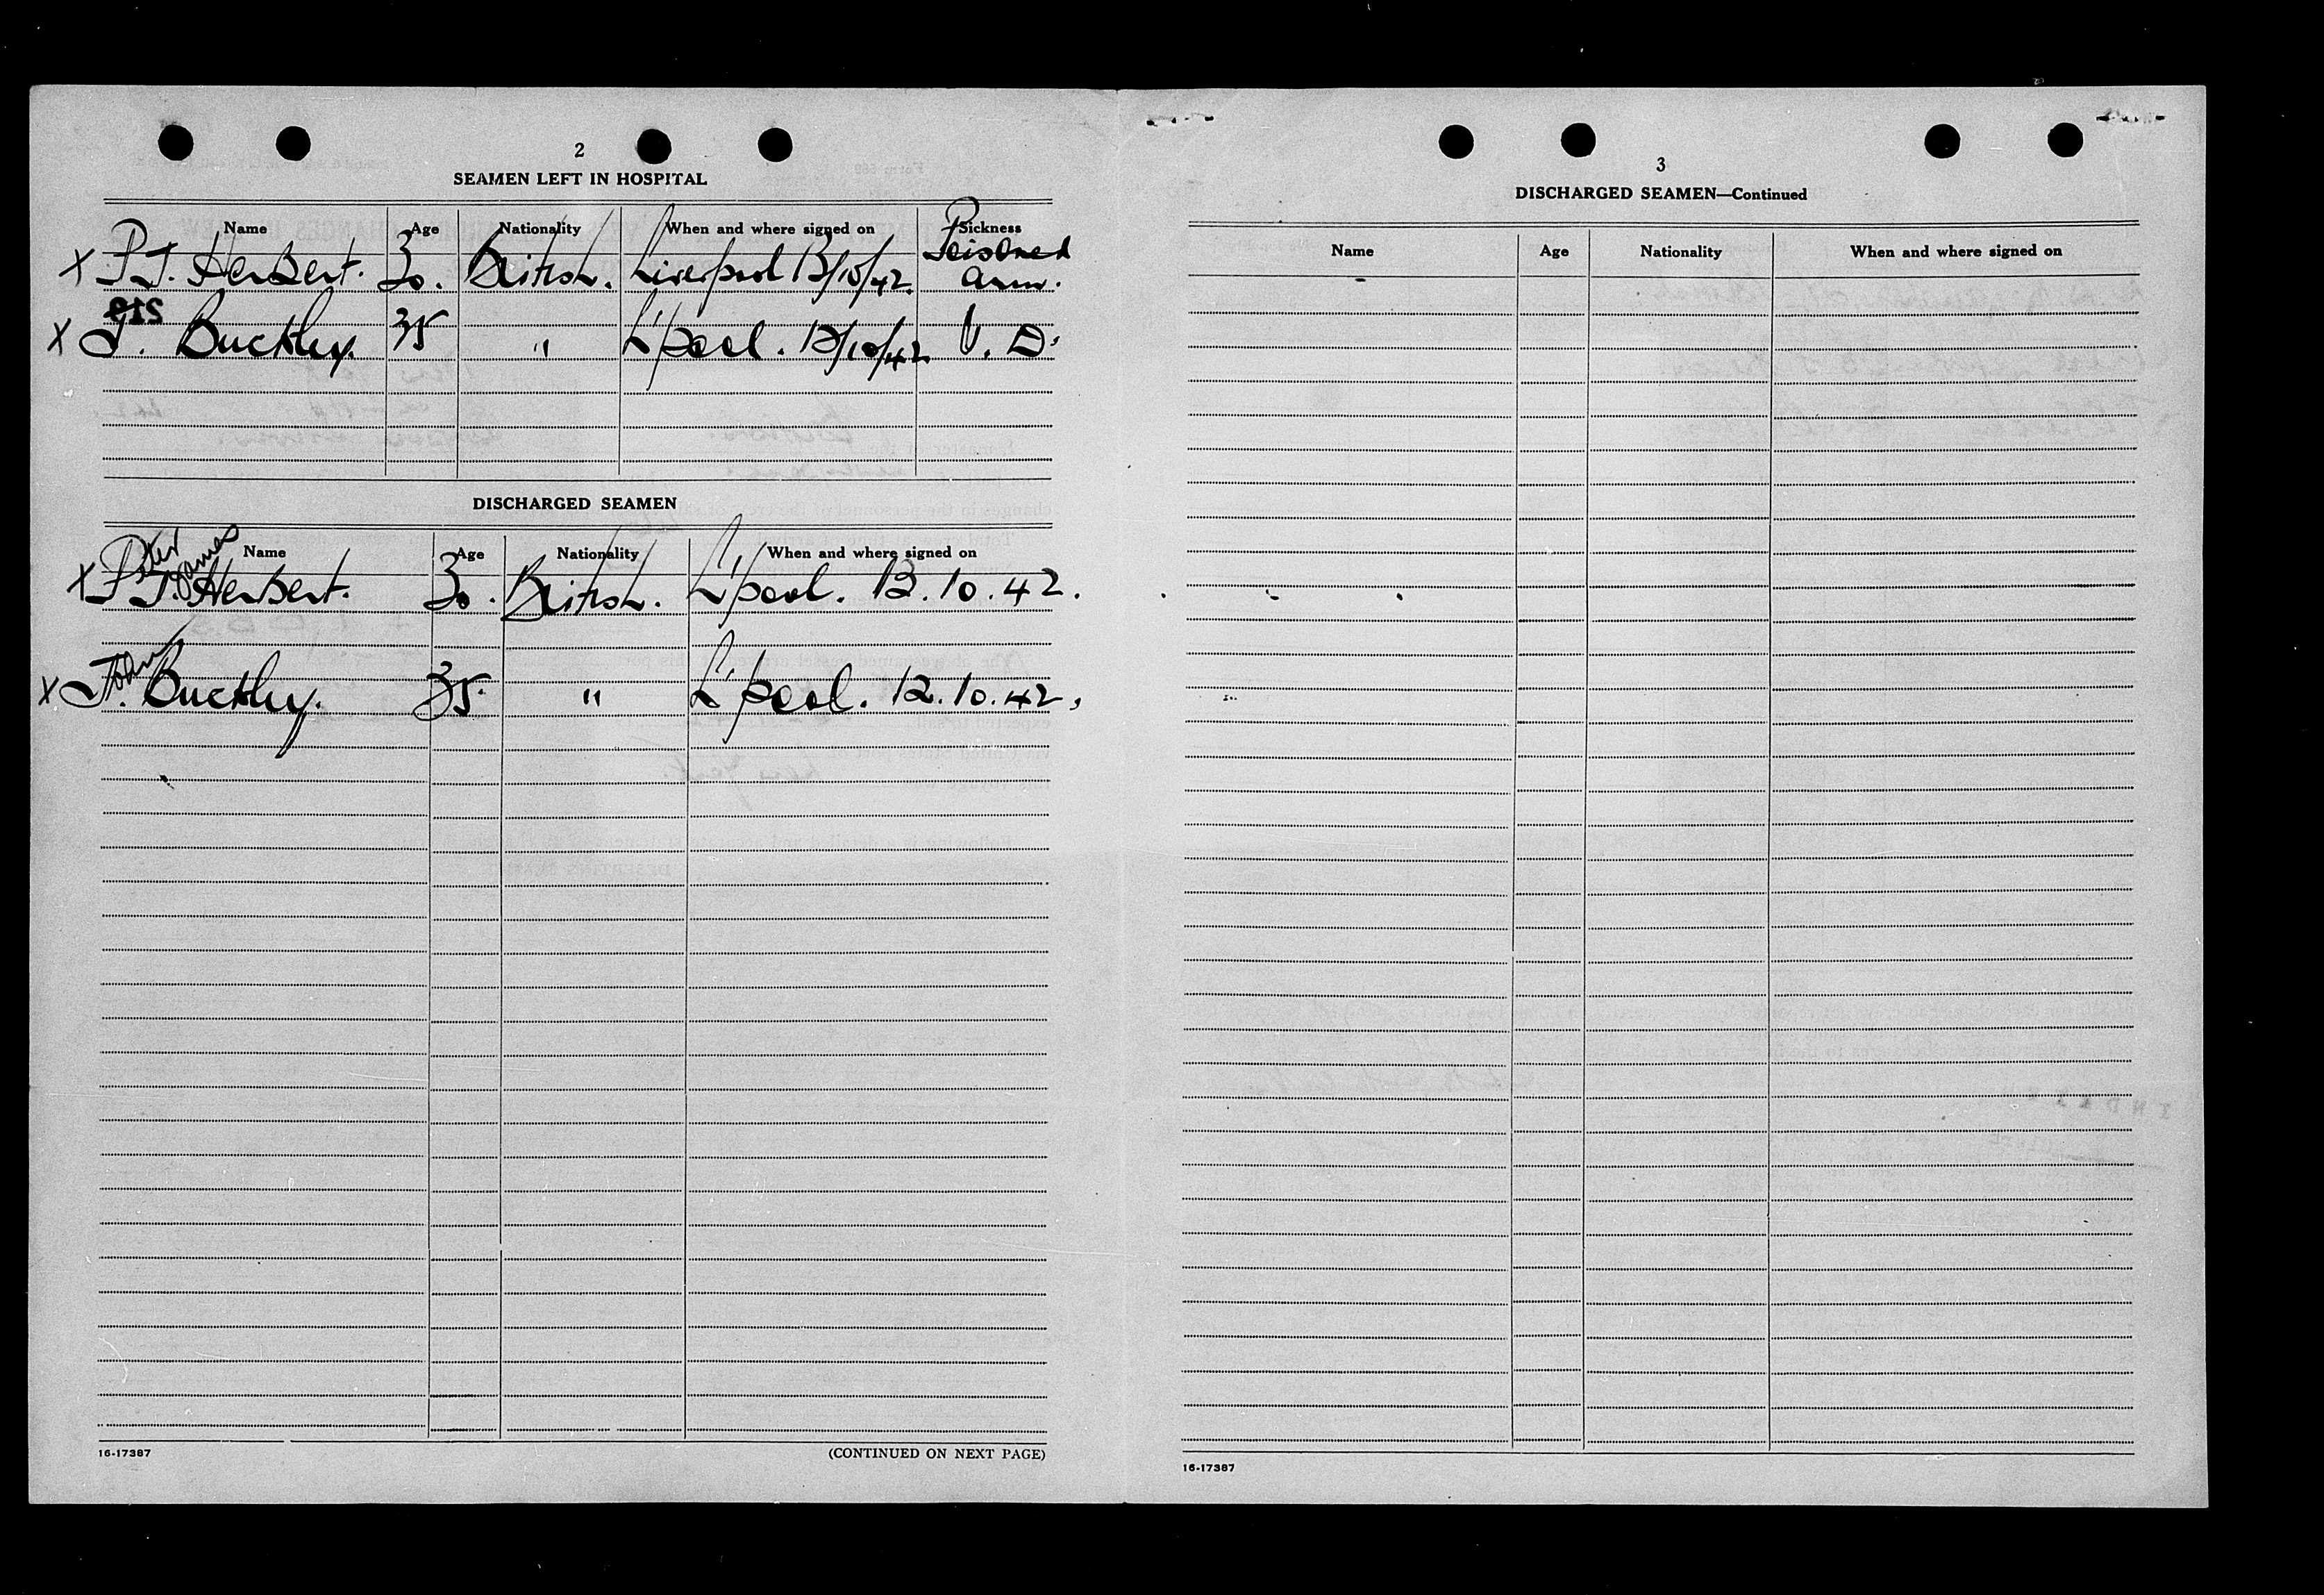 2
SEAMEN LEFT IN HOSPITAL
Name Age Nationality When and where signed on Sickness
X P.J. Herbert. 30. British. Liverpool 13/10/42. Poisoned arm.
X J. Buckley. 35 " L'pool. 12/10/42 V. D.
DISCHARGED SEAMEN
Name Age Nationality When and where signed on
Peter James
X P.J. Herbert. 30. British. L'pool. 13.10.42.
John
X J. Buckley. 35. " L'pool. 12.10.42.
16-17387 (CONTINUED ON NEXT PAGE)
3
DISCHARGED SEAMEN—Continued
Name Age Nationality When and where signed on
16-17387